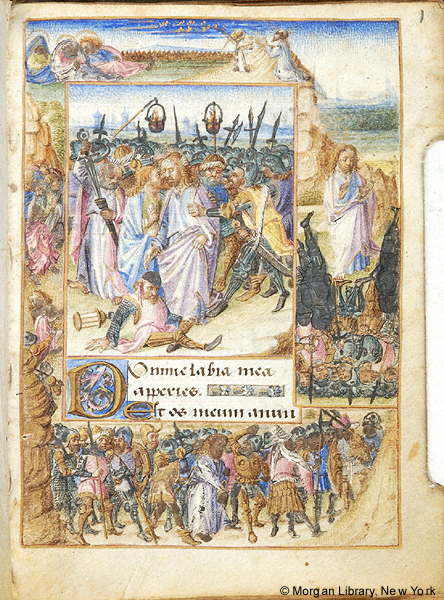 1
Domine labia mea
aperies.
Et os meum annun
© Morgan Library, New York